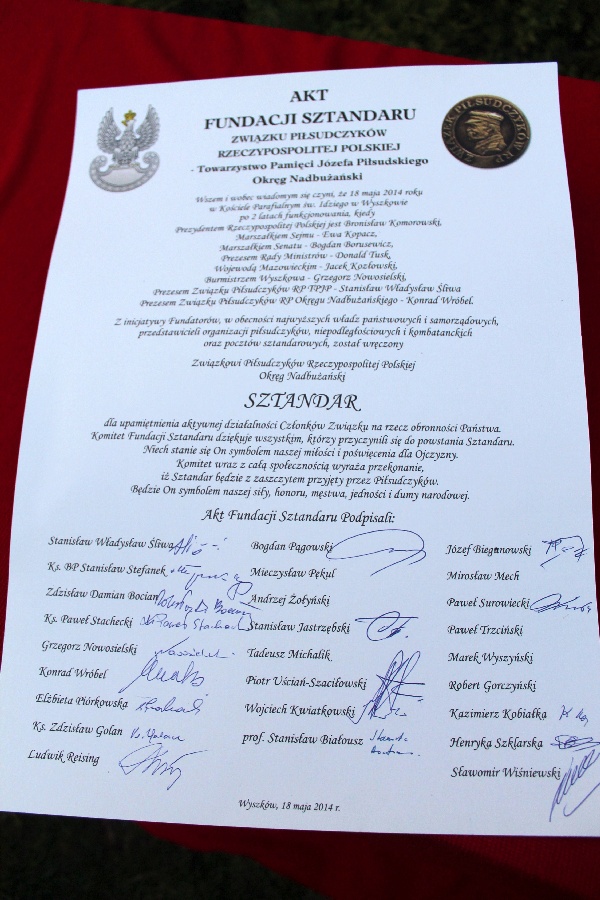 AKT
FUNDACJI SZTANDARU
ZWIĄZKU PIŁSUDCZYKÓW
RZECZYPOSPOLITEJ POLSKIEJ
- Towarzystwo Pamięci Józefa Piłsudskiego
Okręg Nadbużański
ZWIĄZEK PIŁSUDCZYKÓW RP
Wszem i wobec wiadomym się czyni, że 18 maja 2014 roku
w Kościele Parafialnym św. Idziego w Wyszkowie
po 2 latach funkcjonowania, kiedy
Prezydentem Rzeczypospolitej Polskiej jest Bronisław Komorowski,
Marszałkiem Sejmu - Ewa Kopacz,
Marszałkiem Senatu - Bogdan Borusewicz,
Prezesem Rady Ministrów - Donald Tusk,
Wojewodą Mazowieckim - Jacek Kozłowski,
Burmistrzem Wyszkowa - Grzegorz Nowosielski,
Prezesem Związku Piłsudczyków RP TPJP - Stanisław Władysław Śliwa
Prezesem Związku Piłsudczyków RP Okręgu Nadbużańskiego - Konrad Wróbel.
Z inicjatywy Fundatorów, w obecności najwyższych władz państwowych i samorządowych,
przedstawicieli organizacji piłsudczyków, niepodległościowych i kombatanckich
oraz pocztów sztandarowych, został wręczony
Związkowi Piłsudczyków Rzeczypospolitej Polskiej
Okręg Nadbużański
SZTANDAR
dla upamiętnienia aktywnej działalności Członków Związku na rzecz obronności Państwa.
Komitet Fundacji Sztandaru dziękuje wszystkim, którzy przyczynili się do powstania Sztandaru.
Niech stanie się On symbolem naszej miłości i poświęcenia dla Ojczyzny.
Komitet wraz z całą społecznością wyraża przekonanie,
iż Sztandar będzie z zaszczytem przyjęty przez Piłsudczyków.
Będzie On symbolem naszej siły, honoru, męstwa, jedności i dumy narodowej.
Akt Fundacji Sztandaru Podpisali:
Stanisław Władysław Śliwa
Ks. BP Stanisław Stefanek
Zdzisław Damian Bocian
Ks. Paweł Stachecki
Grzegorz Nowosielski
Konrad Wróbel
Elżbieta Piórkowska
Ks. Zdzisław Golan
Ludwik Reising
Bogdan Pągowski
Mieczysław Pękul
Andrzej Żołyński
Stanisław Jastrzębski
Tadeusz Michalik
Piotr Uściań-Szaciłowski
Wojciech Kwiatkowski
prof. Stanisław Białousz
Józef Biegmowski
Mirosław Mech
Paweł Surowiecki
Paweł Trzciński
Marek Wyszyński
Robert Gorczyński
Kazimierz Kobiałka
Henryka Szklarska
Sławomir Wiśniewski
Wyszków, 18 maja 2014 r.